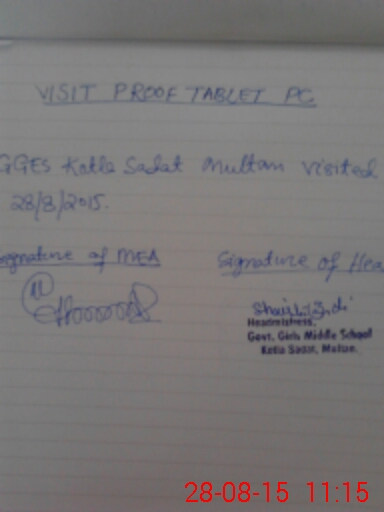 VISIT PROOF TABLET PC
GGES Kotla Sadat Multan visited
28/8/2015.
Signature of MEA Signature of Hea
Headmistress,
Govt. Girls Middle School
Kotla Sadat, Multan.
28-08-15 11:15